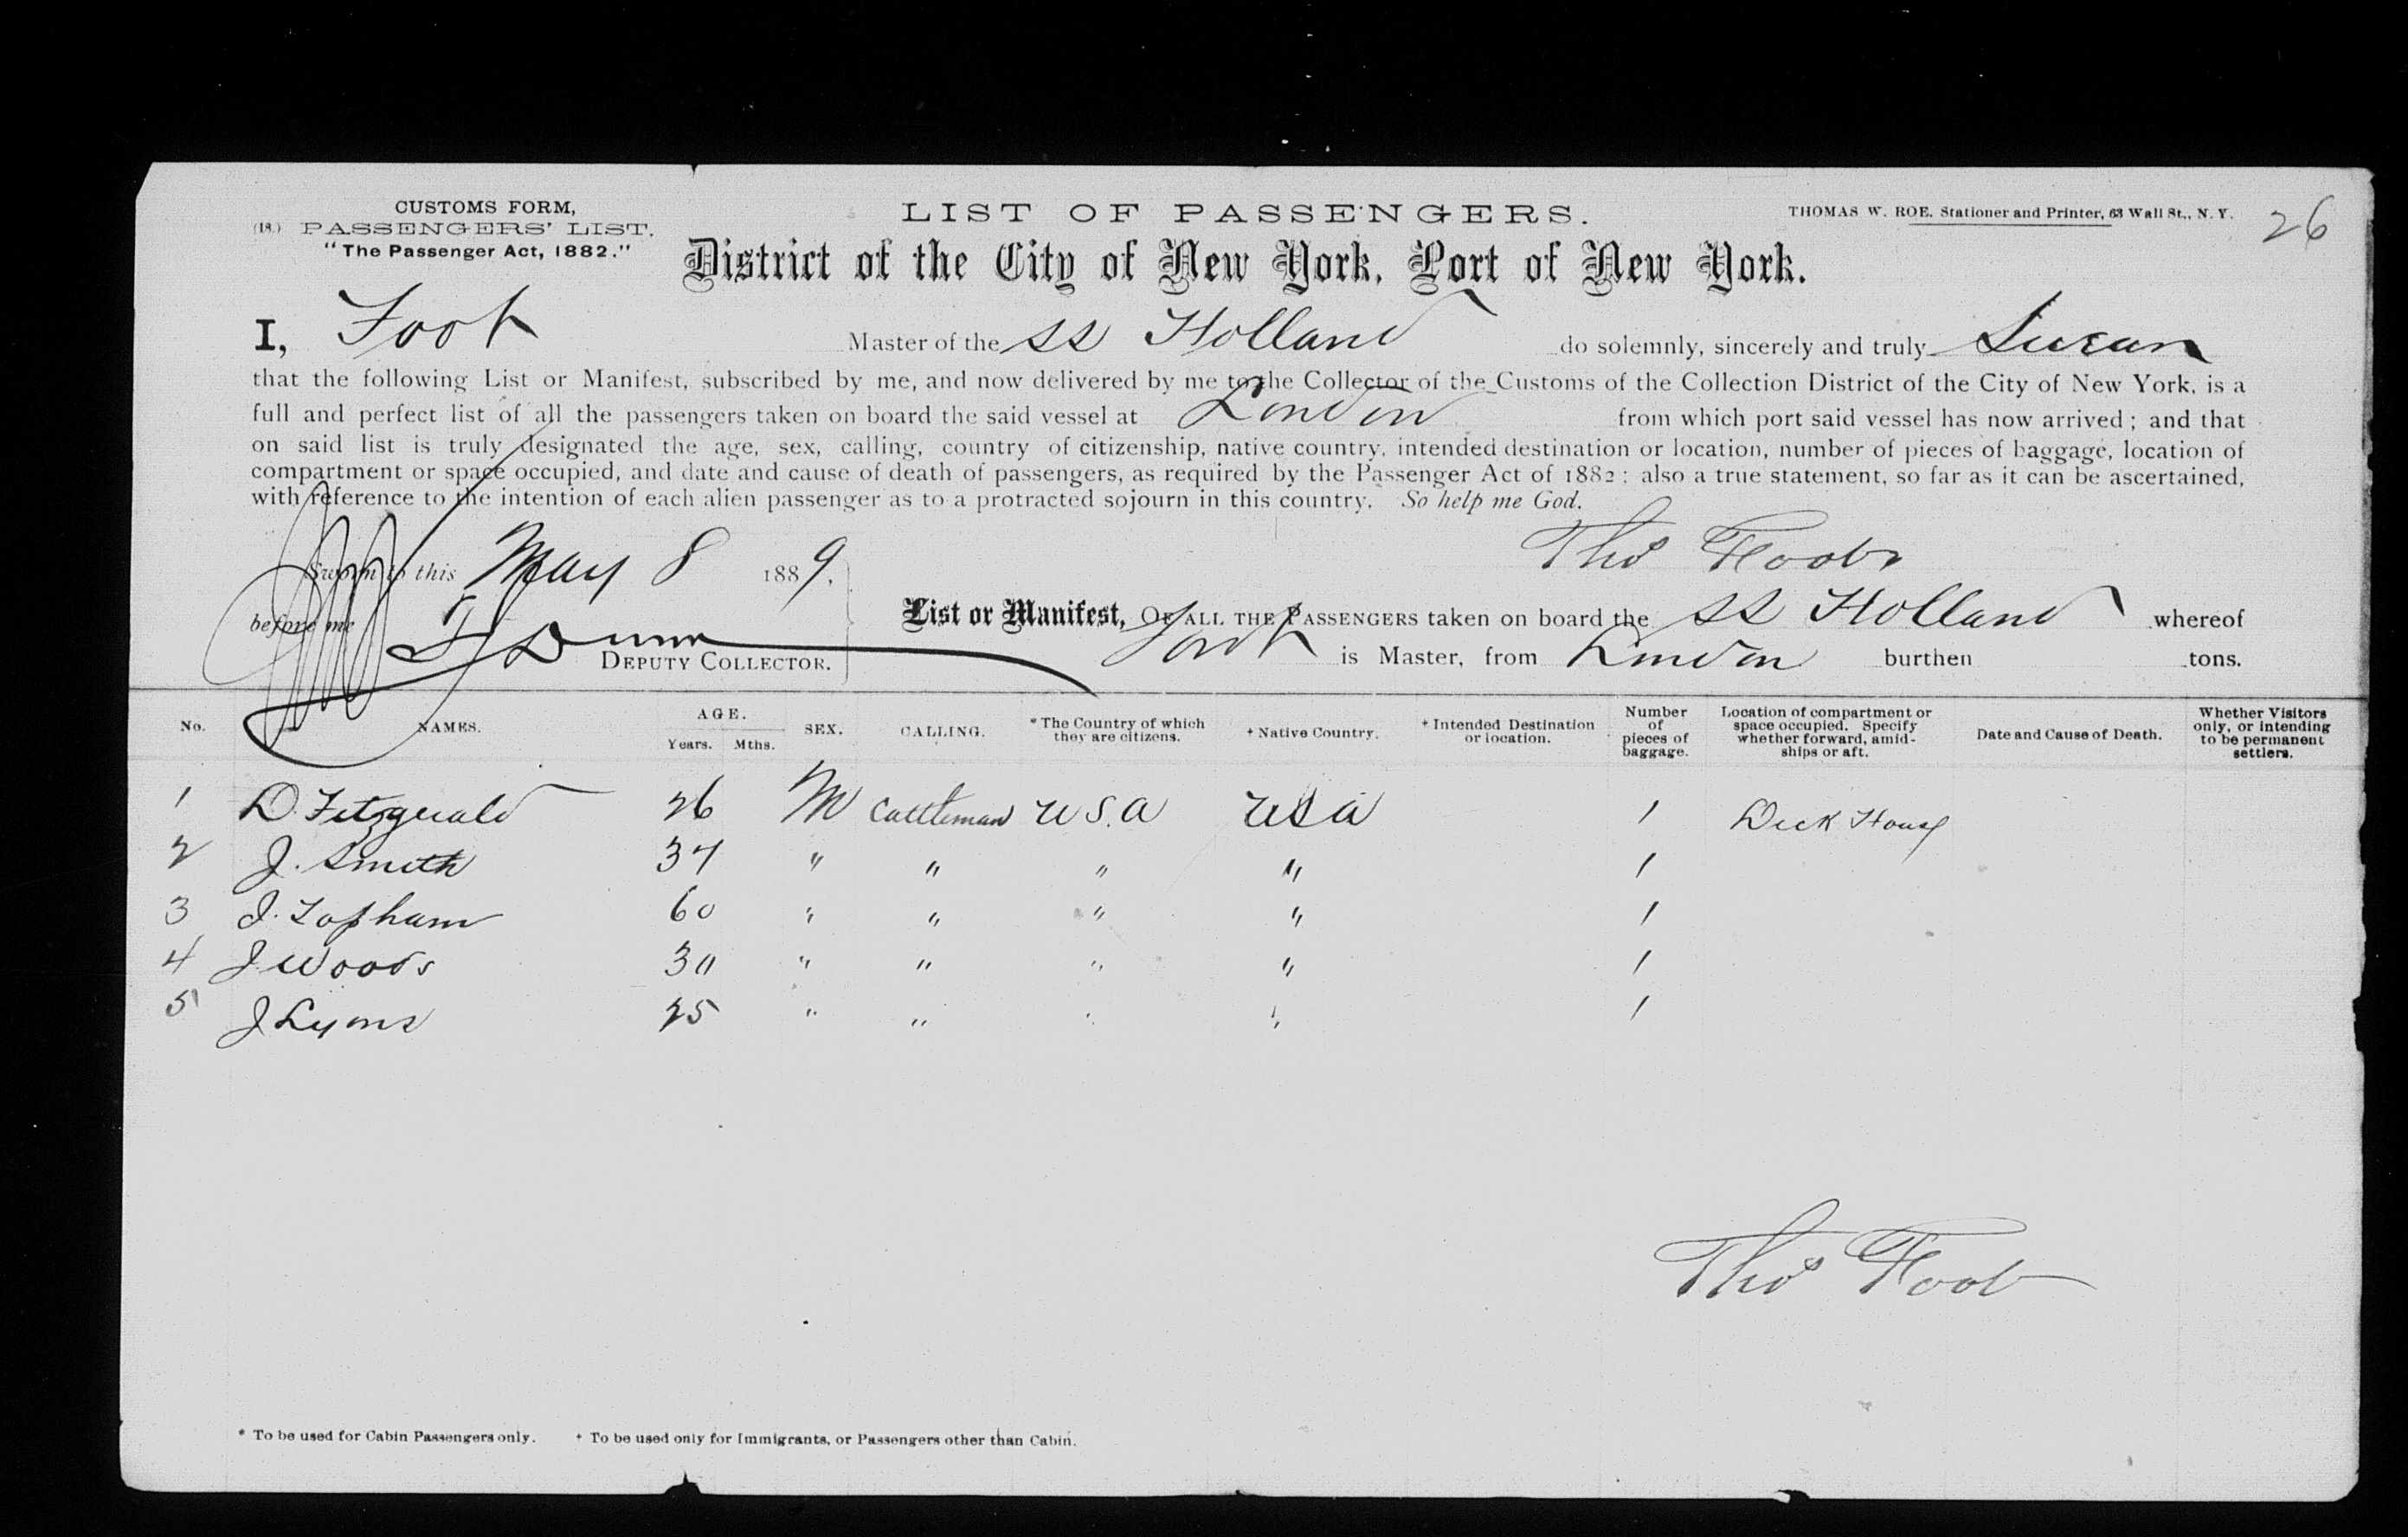 CUSTOMS FORM,
(18.) PASSENGERS' LIST.
"The Passenger Act, 1882."
LIST OF PASSENGERS.
THOMAS W. ROE, Stationer and Printer, 63 Wall St., N. Y.
26
District of the City of New York, Port of New York.
I, Foot Master of the SS Holland do solemnly, sincerely and truly Swear
that the following List or Manifest, subscribed by me, and now delivered by me to the Collector of the Customs of the Collection District of the City of New York, is a
full and perfect list of all the passengers taken on board the said vessel at London from which port said vessel has now arrived; and that
on said list is truly designated the age, sex, calling, country of citizenship, native country, intended destination or location, number of pieces of baggage, location of
compartment or space occupied, and date and cause of death of passengers, as required by the Passenger Act of 1882: also a true statement, so far as it can be ascertained,
with reference to the intention of each alien passenger as to a protracted sojourn in this country. So help me God.
Sworn to this May 8 1889, Thos Foot
before me Dunn
DEPUTY COLLECTOR.
List or Manifest, OF ALL THE PASSENGERS taken on board the SS Holland whereof
Foot is Master, from London burthen tons.
No. NAMES. AGE. Years. Mths. SEX. CALLING. * The Country of which they are citizens. + Native Country. + Intended Destination or location. Number of pieces of baggage. Location of compartment or space occupied. Specify whether forward, amidships or aft. Date and Cause of Death. Whether Visitors only, or intending to be permanent settlers.
1 D. Fitzgerald 26 M Cattleman U S. A U S A 1 Deck House
2 J. Smith 37 " " " " 1
3 J. Topham 60 " " " " 1
4 J Woods 30 " " " " 1
5 J Lyons 25 " " " " 1
Thos Foot
* To be used for Cabin Passengers only. + To be used only for Immigrants, or Passengers other than Cabin.